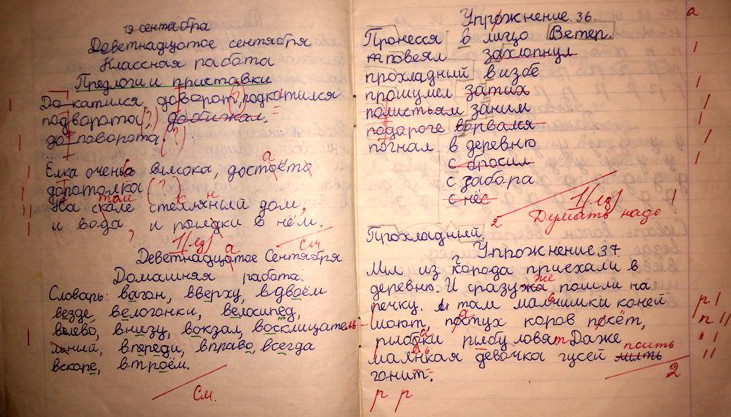 19 сентября
Деветнадцотое сентября
Классная работа
Предлоги и приставки
Докатился, доворот(?) родкатился
подворота(?) добижал.
доповорота. (?)
Ёлка очень высока, достаёта
доротолка (?)
На скале стеклянный дом,
и вода, и рыбдки в нём.
1(лд)
См.
Деветнадцатое Сентября
Домашняя работа.
Словарь: вагон, вверху, вдвоём
везде, велогонки, велосипед,
влево, внизу, вокзал, восклицатель-
ный, впереди, вправо, всегда
вскоре, втроём.
См.
Упрожнение. 36
Пронесся в лицо Ветер.
повеял захлопнул
прохладний в избе
прошумел затих
полистьям заним
подороге ворвался
погнал в деревню
с бросил
с забора
с нёс
1(лд)
2 Думать надо!
Прохладный.
Упрожнение. 37
Мы из города приехали в
деревню. И сразу же пошли на
речку. А там мальчишки коней
моют, пастух коров посёт,
рыбаки рыбу ловят. Даже
маленкая девочка гусей поить
гонит.
2
р р